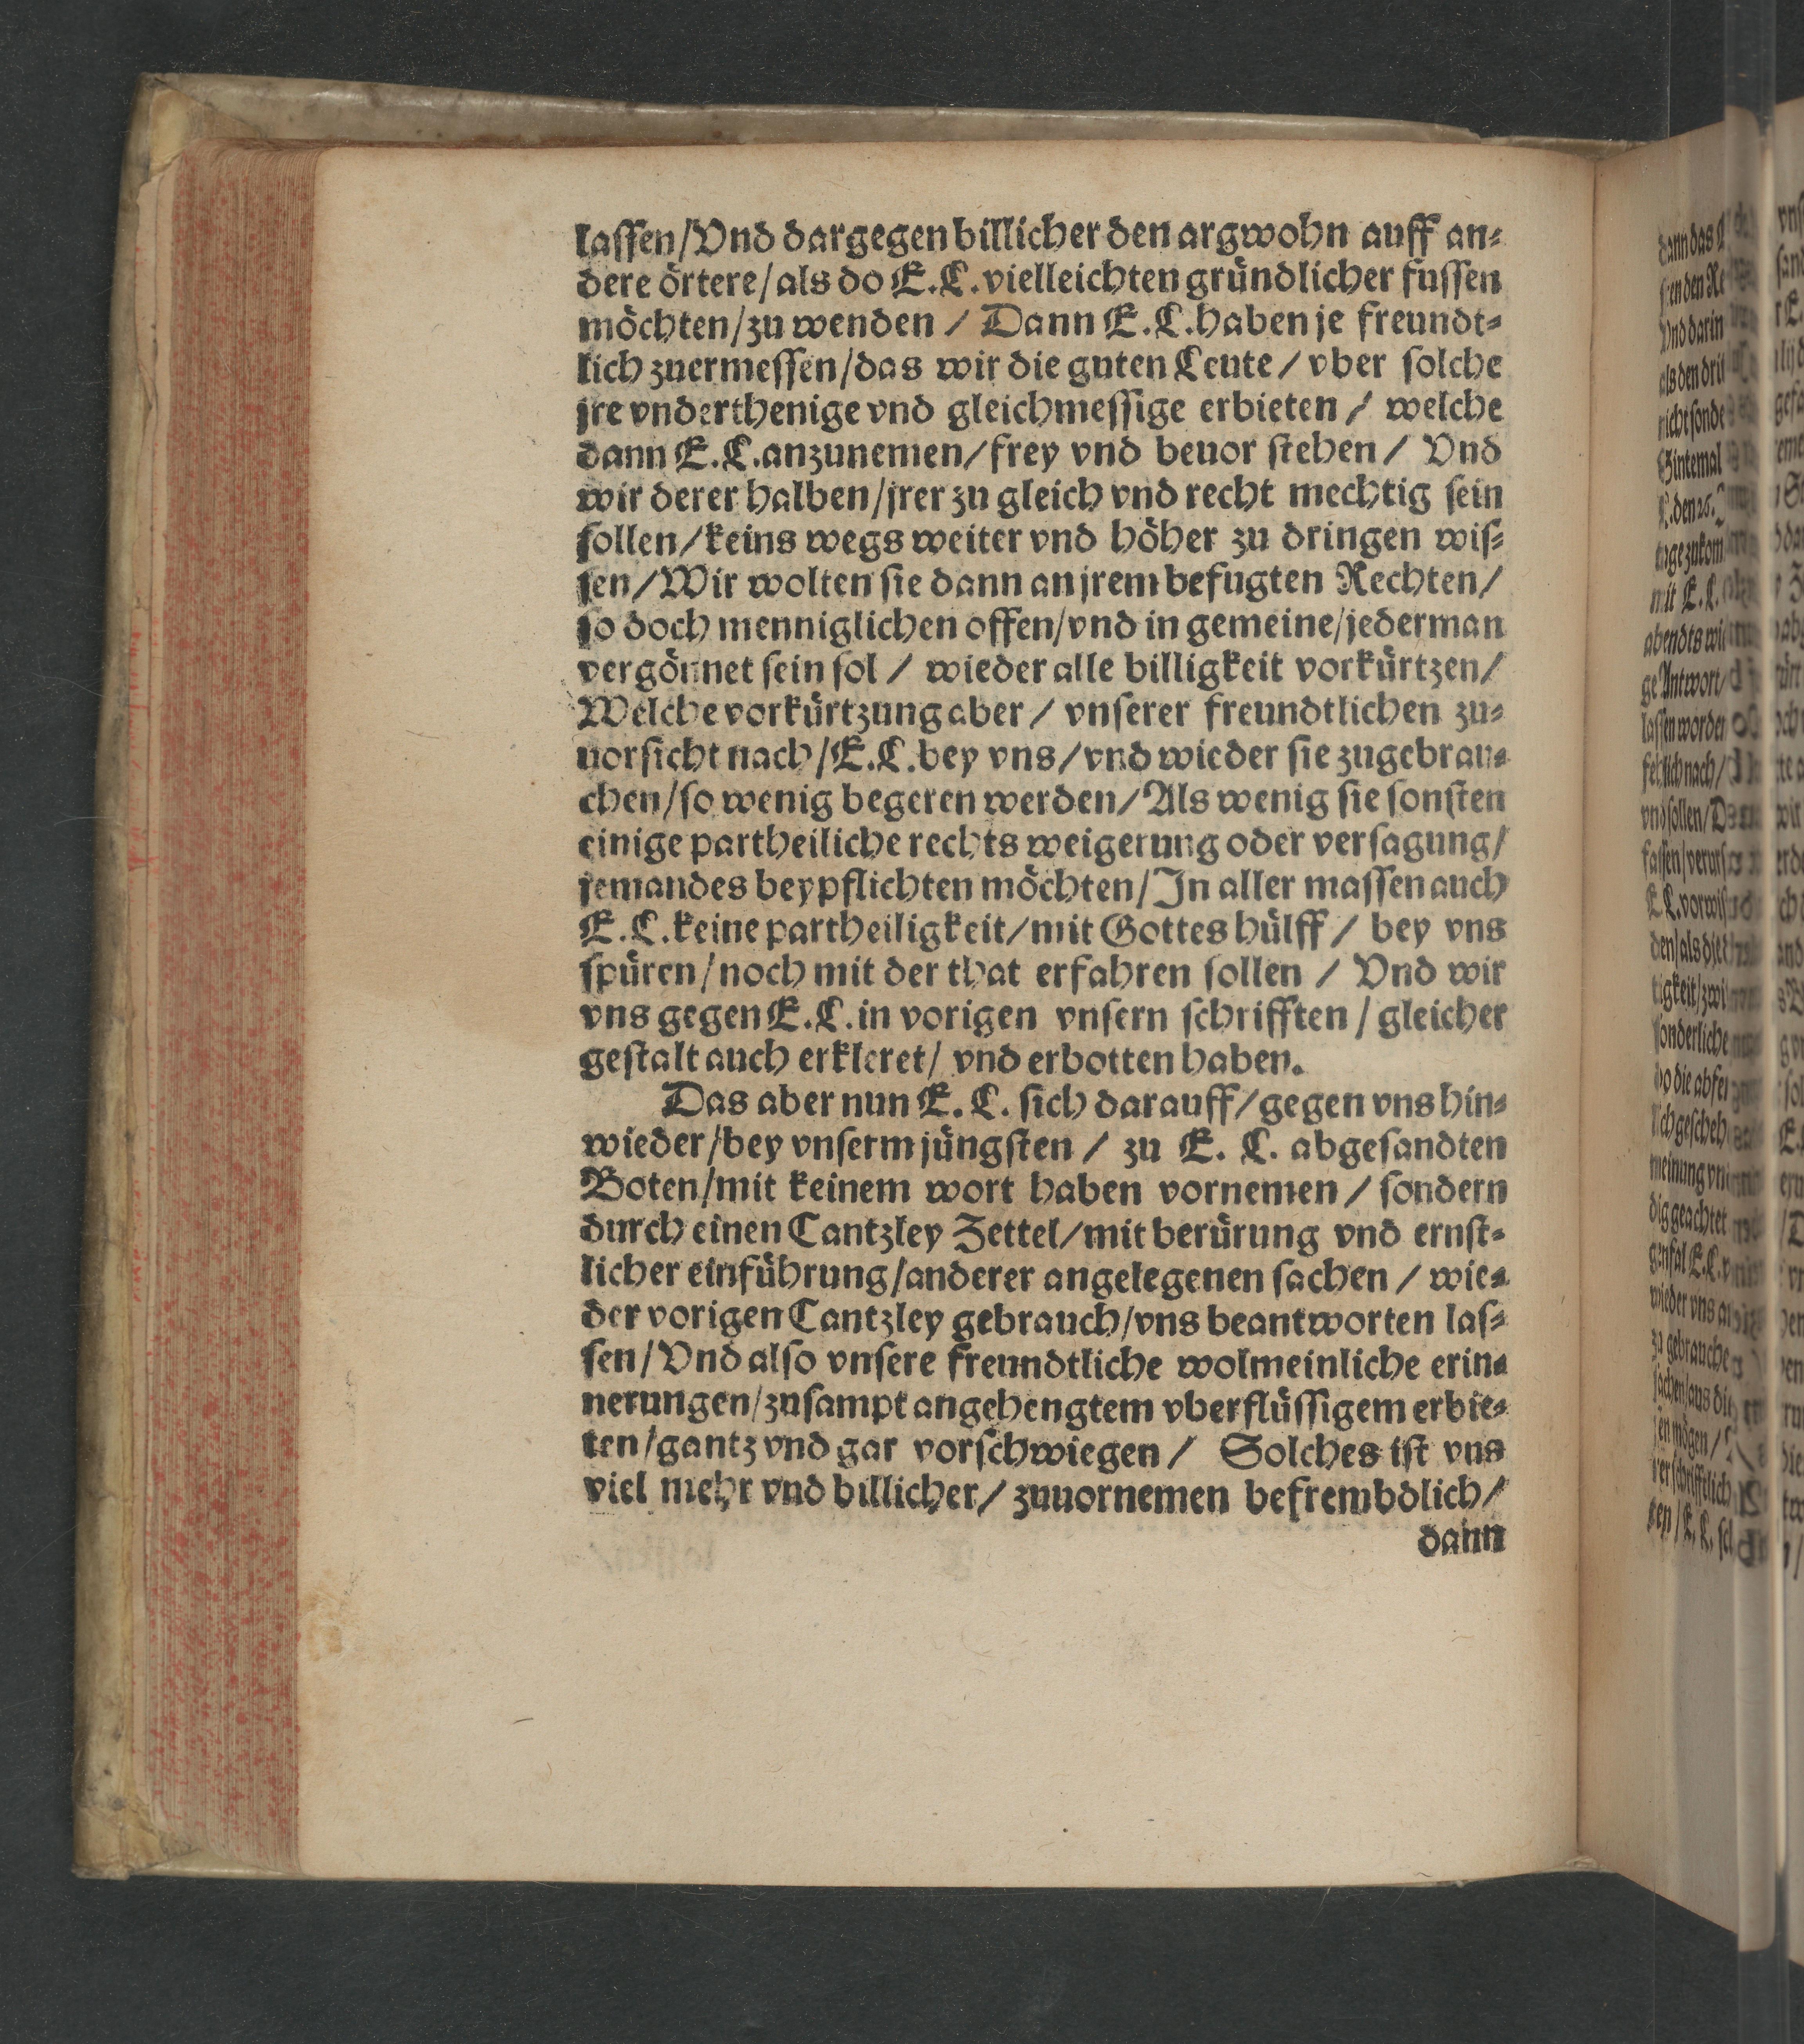 lassen/Vnd dargegen billicher den argwohn auff an⸗
dere örtere/als do E.L.vielleichten gründlicher fussen
möchten/zu wenden / Dann E.L.haben je freundt⸗
lich zuermessen/das wir die guten Leute/ vber solche
jre vnderthenige vnd gleichmessige erbieten / welche
dann E.L.anzunemen/frey vnd beuor stehen/ Vnd
wir derer halben/jrer zu gleich vnd recht mechtig sein
sollen/keins wegs weiter vnd höher zu dringen wis⸗
sen/Wir wolten sie dann an jrem befugten Rechten/
so doch menniglichen offen/vnd in gemeine/jederman
vergönnet sein sol / wieder alle billigkeit vorkürtzen/
Welche vorkürtzung aber/ vnserer freundtlichen zu⸗
uorsicht nach/E.L.bey vns/vnd wieder sie zugebrau⸗
chen/so wenig begeren werden/Als wenig sie sonsten
einige partheiliche rechts weigerung oder versagung/
jemandes beypflichten möchten/In aller massen auch
E.L.keine partheiligkeit/mit Gottes hülff/ bey vns
spüren/noch mit der that erfahren sollen / Vnd wir
vns gegen E.L.in vorigen vnsern schrifften/gleicher
gestalt auch erkleret/ vnd erbotten haben.
Das aber nun E.L. sich darauff/gegen vns hin⸗
wieder/bey vnserm jüngsten / zu E. L. abgesandten
Boten/mit keinem wort haben vornemen/ sondern
durch einen Cantzley Zettel/mit berürung vnd ernst⸗
licher einführung/anderer angelegenen sachen / wie⸗
der vorigen Cantzley gebrauch/vns beantworten las⸗
sen/Vnd also vnsere freundtliche wolmeinliche erin⸗
nerungen/zusampt angehengtem vberflüssigem erbie⸗
ten/gantz vnd gar vorschwiegen/ Solches ist vns
viel mehr vnd billicher/ zuuornemen befrembdlich/
dann